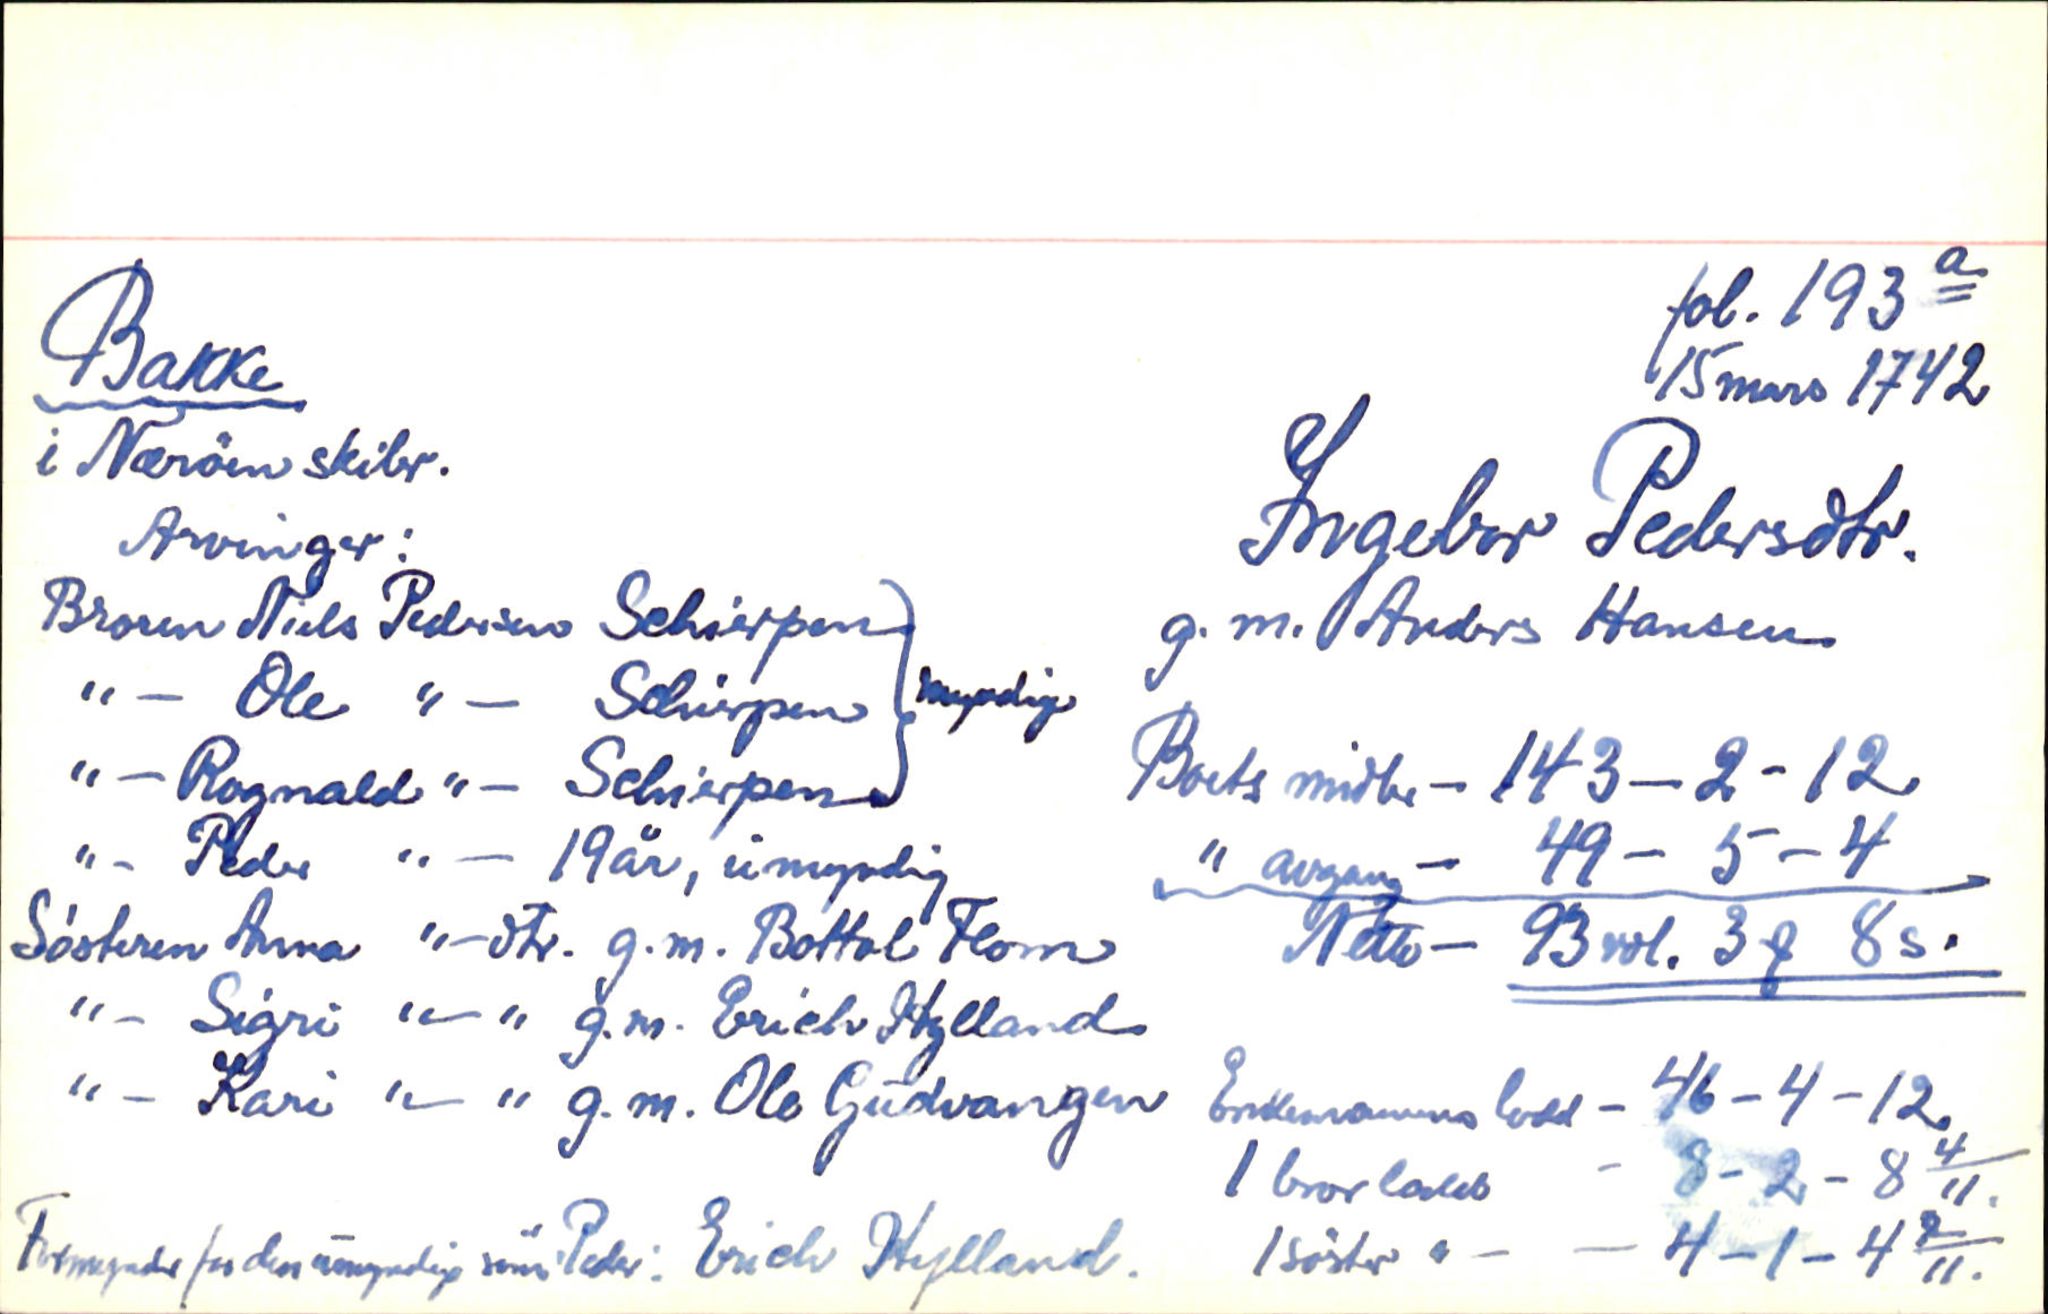 fol. 193 a
15 mars 1742
Bakke
i Næröen skibr.
Ingebor Pedersdtr.
g. m. Anders Hansen
Arvinger:
Broren Niels Pedersen Schierpen
"- Ole "- Schierpen } myndig
"- Rognald "- Schierpen
"- Peder "- 19 år, umyndig
Sösteren Anna "-dtr. g.m. Bottol Flom
"- Sigri "-" g.m. Erich Hylland
"- Kari "-" g.m. Ole Gudvangen
Formynder for den umyndige sön Peder: Erich Hylland.
Boets midler - 143 - 2 - 12
" avgang - 49 - 5 - 4
Netto - 93 rdl. 3 ƒ 8 s.
Enkemannens lodd - 46 - 4 - 12
1 bror lodd - 8 - 2 - 8 4/11.
1 söster " - - 4 - 1 - 4 2/11.